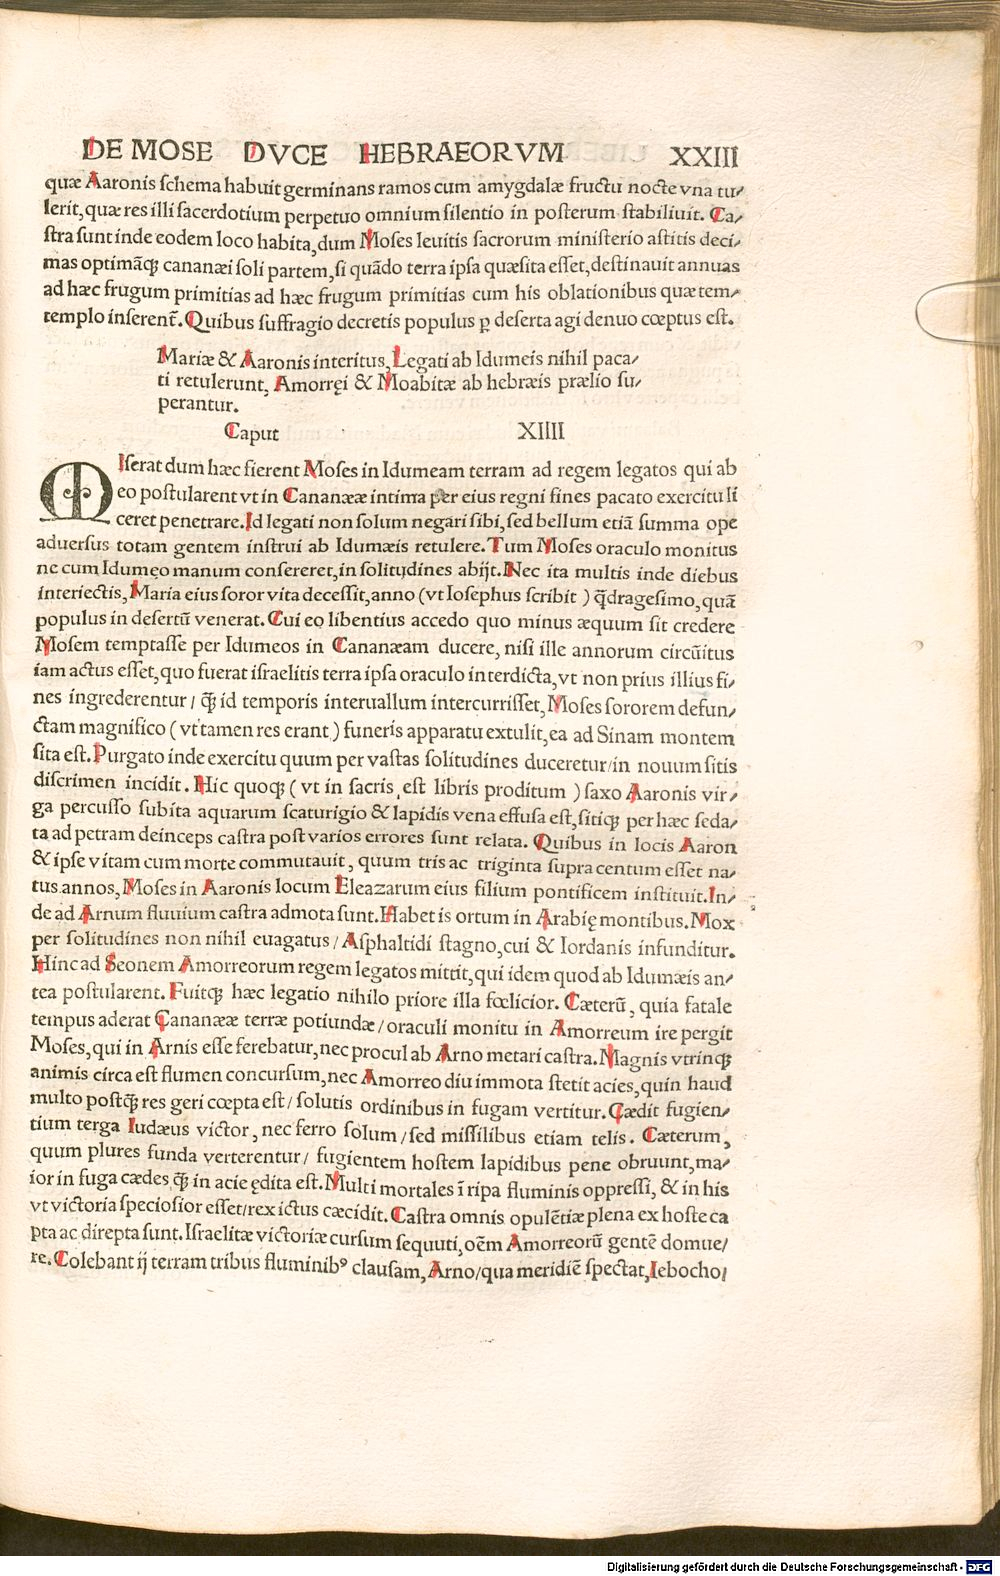 DE MOSE DVCE HEBRAEORVM XXIII
quæ Aaronis schema habuit germinans ramos cum amygdalæ fructu nocte vna tu/
lerit, quæ res illi sacerdotium perpetuo omnium silentio in posterum stabiliuit. Ca/
stra sunt inde eodem loco habita, dum Moses leuitis sacrorum ministerio astitis deci/
mas optimāqꝫ cananæi soli partem, si quādo terra ipsa quæsita esset, destinauit annuas
ad hæc frugum primitias ad hæc frugum primitias cum his oblationibus quæ tem/
templo inserent̄. Quibus suffragio decretis populus ꝑ deserta agi denuo cœptus est.
Mariæ & Aaronis interitus, Legati ab Idumeis nihil paca/
ti retulerunt, Amorręi & Moabitæ ab hebræis prælio su/
perantur.
Caput XIIII
MIserat dum hæc fierent Moses in Idumeam terram ad regem legatos qui ab
eo postularent vt in Cananææ intima per eius regni fines pacato exercitu li
ceret penetrare. Id legati non solum negari sibi, sed bellum etiā summa ope
aduersus totam gentem instrui ab Idumæis retulere. Tum Moses oraculo monitus
ne cum Idumęo manum consereret, in solitudines abijt. Nec ita multis inde diebus
interiectis, Maria eius soror vita decessit, anno (vt Iosephus scribit) q̄dragesimo, quā
populus in desertū venerat. Cui eo libentius accedo quo minus æquum sit credere
Mosem temptasse per Idumeos in Cananæam ducere, nisi ille annorum circūitus
iam actus esset, quo fuerat israelitis terra ipsa oraculo interdicta, vt non prius illius fi/
nes ingrederentur / q̄ꝫ id temporis interuallum intercurrisset, Moses sororem defun/
ctam magnifico (vt tamen res erant) funeris apparatu extulit, ea ad Sinam montem
sita est. Purgato inde exercitu quum per vastas solitudines duceretur/in nouum sitis
discrimen incidit. Hic quoqꝫ (vt in sacris est libris proditum) saxo Aaronis vir/
ga percusso subita aquarum scaturigio & lapidis vena effusa est, sitiqꝫ per hæc seda/
ta ad petram deinceps castra post varios errores sunt relata. Quibus in locis Aaron
& ipse vitam cum morte commutauit, quum tris ac triginta supra centum esset na/
tus annos, Moses in Aaronis locum Eleazarum eius filium pontificem instituit. In/
de ad Arnum fluuium castra admota sunt. Habet is ortum in Arabię montibus. Mox
per solitudines non nihil euagatus / Asphaltidi stagno, cui & Iordanis infunditur.
Hinc ad Seonem Amorreorum regem legatos mittit, qui idem quod ab Idumæis an/
tea postularent. Fuitqꝫ hæc legatio nihilo priore illa fœlicior. Cæterū, quia fatale
tempus aderat Cananææ terræ potiundæ / oraculi monitu in Amorreum ire pergit
Moses, qui in Arnis esse ferebatur, nec procul ab Arno metari castra. Magnis vtrinqꝫ
animis circa est flumen concursum, nec Amorreo diu immota stetit acies, quin haud
multo postq̄ꝫ res geri cœpta est / solutis ordinibus in fugam vertitur. Cædit fugien/
tium terga Iudæus victor, nec ferro solum / sed missilibus etiam telis. Cæterum,
quum plures funda verterentur / fugientem hostem lapidibus pene obruunt, ma/
ior in fuga cædes q̄ꝫ in acie ędita est. Multi mortales ī ripa fluminis oppressi, & in his
vt victoria speciosior esset/rex ictus cæcidit. Castra omnis opulētiæ plena ex hoste ca
pta ac direpta sunt. Israelitæ victoriæ cursum sequuti, oēm Amorreorū gentē domue/
re. Colebant ij terram tribus fluminibꝰ clausam, Arno/qua meridiē spectat, Iebocho/
Digitalisierung gefördert durch die Deutsche Forschungsgemeinschaft - DFG